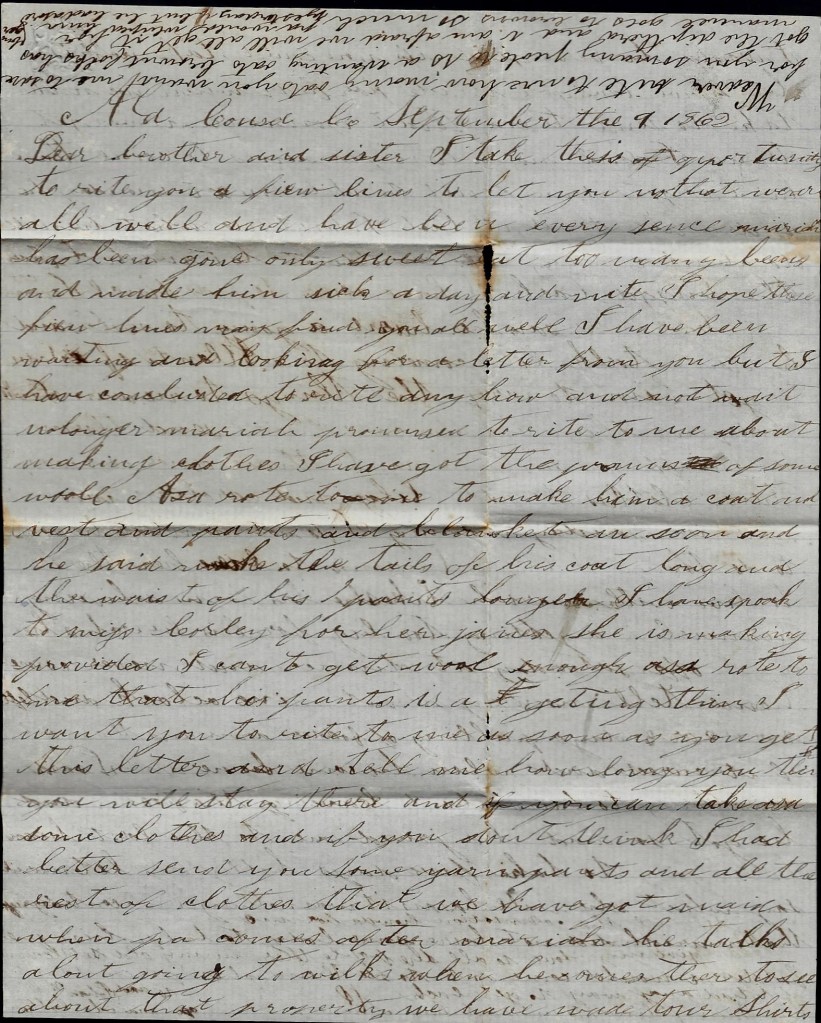 Weaver rite to me how many oats you want me to save
for you so many people is a wanting oats brown folks has
got the dipthera and i am afraid we will all get it
manuel goes to browns so much
N C Coused Co September the 9 1862
Dear brother and sister I take this opportunity
to rite you a fiew lines to let you no that we are
all well and have been every sence mariah
has been gone only sweet eat too many beens
and made him sick a day and nite I hope these
fiew lines may find you all well I have been
waiting and looking for a letter from you but I
have concluded to rite any how and not wait
nolonger mariah promersed to rite to me about
making clothes I have got the promis of some
wooll Asa rote to me to make him a coat and
vest and pants and blanket an soon and
he said make the tails of his coat long and
the waist of his pants longer I have spook
to miss Corley for her janes she is making
provided I cant get wool enough asa rote to
me that his pants is a getting thin I
want you to rite to me as soon as you get
this letter and tell me how long you think
you will stay there and if you can take asa
some clothes and if you dont think I had
better send you some yarn pants and all the
rest of clothes that we have got maid
when pa comes after mariah he talks
about going to wilks when he comes ther to see
about that property we have made four shirts